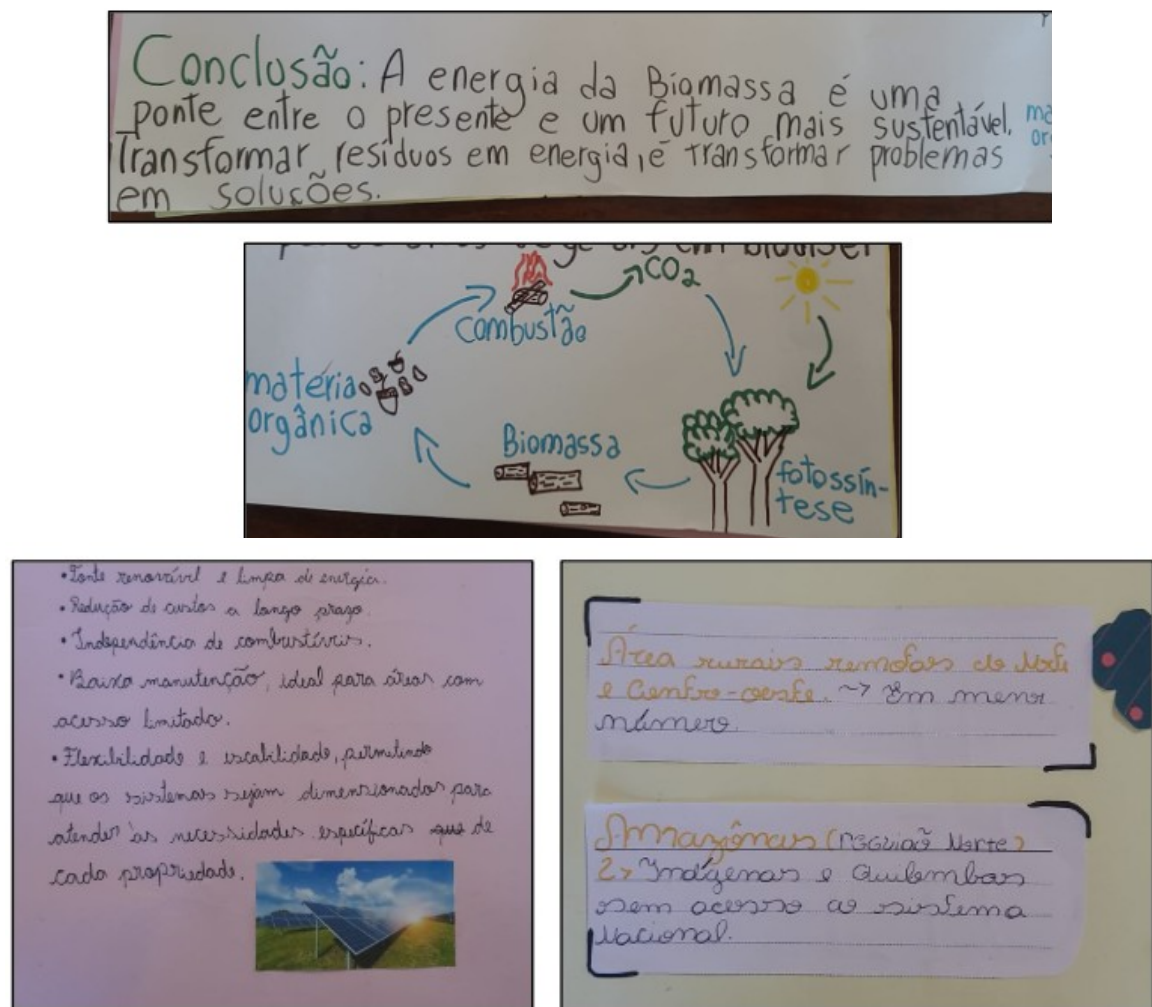 Conclusão: A energia da Biomassa é uma
ponte entre o presente e um futuro mais sustentável.
Transformar resíduos em energia, é transformar problemas
em soluções.
ma
or
CO2
combustão
matéria
orgânica
Biomassa
fotossín-
tese
• Fonte renovável e limpa de energia.
• Redução de custos a longo prazo.
• Independência de combustíveis.
• Baixa manutenção, ideal para áreas com
acesso limitado.
• Flexibilidade e escabilidade, permitindo
que os sistemas sejam dimensionados para
atender às necessidades específicas que de
cada propriedade.
Área rurais remotas do Norte
e Centro-oeste. ~> Em menor
número.
Amazônas (REGUIAÕ Norte)
2> Indígenas e Quilombas
sem acesso ao sistema
Nacional.